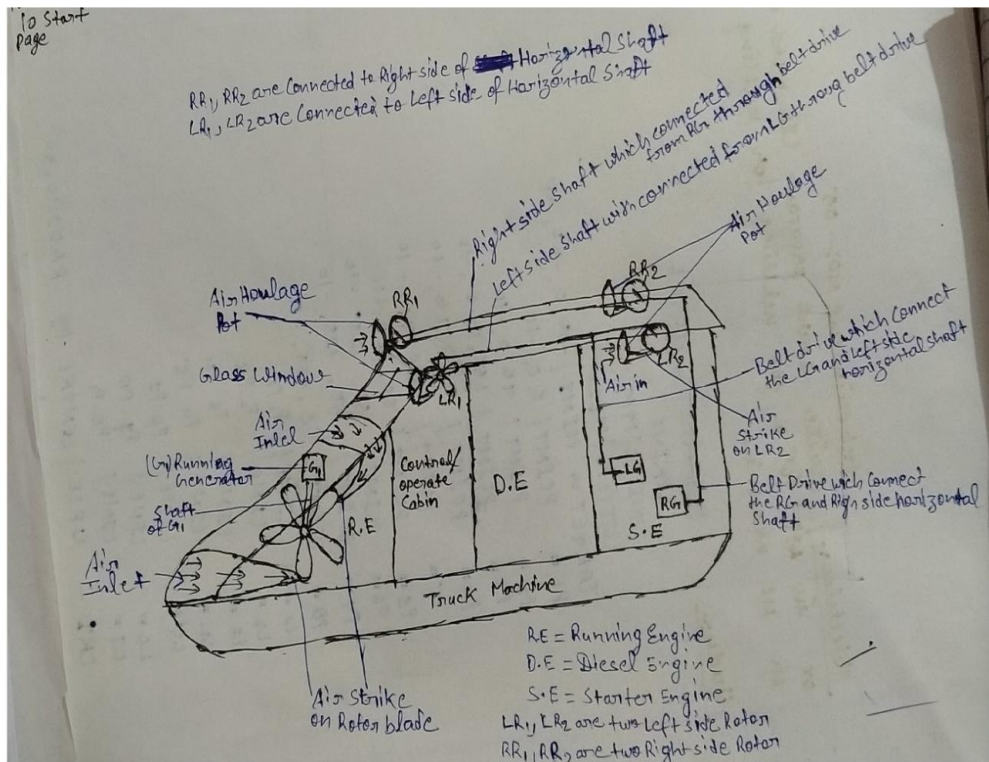 10 Start
page
RR1, RR2 are Connected to Right side of Horizontal Shaft
LR1, LR2 are Connected to Left side of Horizontal Shaft
Right side shaft which connected
from RG through belt drive
Left side shaft wich connected from LG throug belt drive
Air Houlage
Pot
RR2
Air Houlage
Pot
RR1
Glass Window
LR1
R2
Air in
Belt drive which connect
the LG and Left side
horizontal shaft
Air
Inlet
Air
Strike
on LR2
(G1) Running
Generator
G1
Control/
operate
Cabin
D.E
LG
RG
Belt Drive wich Connect
the RG and Righ side horizontal
Shaft
Shaft
of G1
R.E
S.E
Air
Inlet
Truck Machine
Air Strike
on Rotor blade
R.E = Running Engine
D.E = Diesel Engine
S.E = Starter Engine
LR1, LR2 are two Left side Rotor
RR1, RR2 are two Right side Rotor